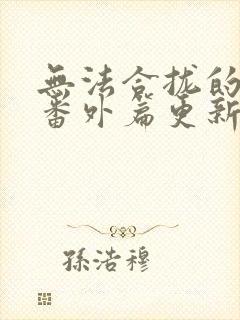 無法合拢的
番外篇更新
孫浩穆